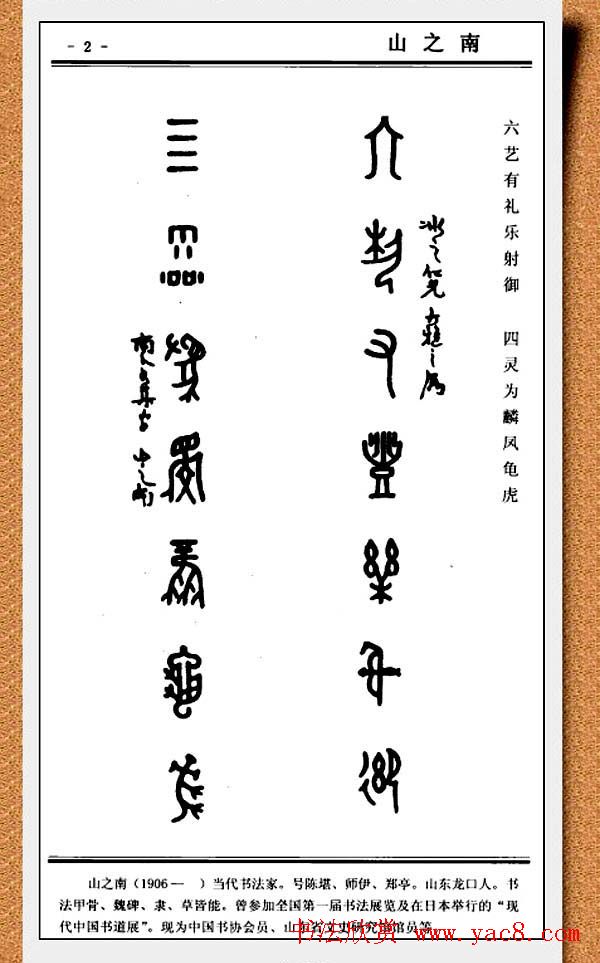 - 2 -
山之南
六艺有礼乐射御 四灵为麟凤龟虎
六艺有礼乐射御
四灵为麟凤龟虎
山之南（1906— ）当代书法家。号陈堪、师伊、郑亭。山东龙口人。书
法甲骨、魏碑、隶、草皆能。曾参加全国第一届书法展览及在日本举行的“现
代中国书道展”。现为中国书协会员、山东省文史研究馆馆员等。
书法欣赏 www.yac8.com